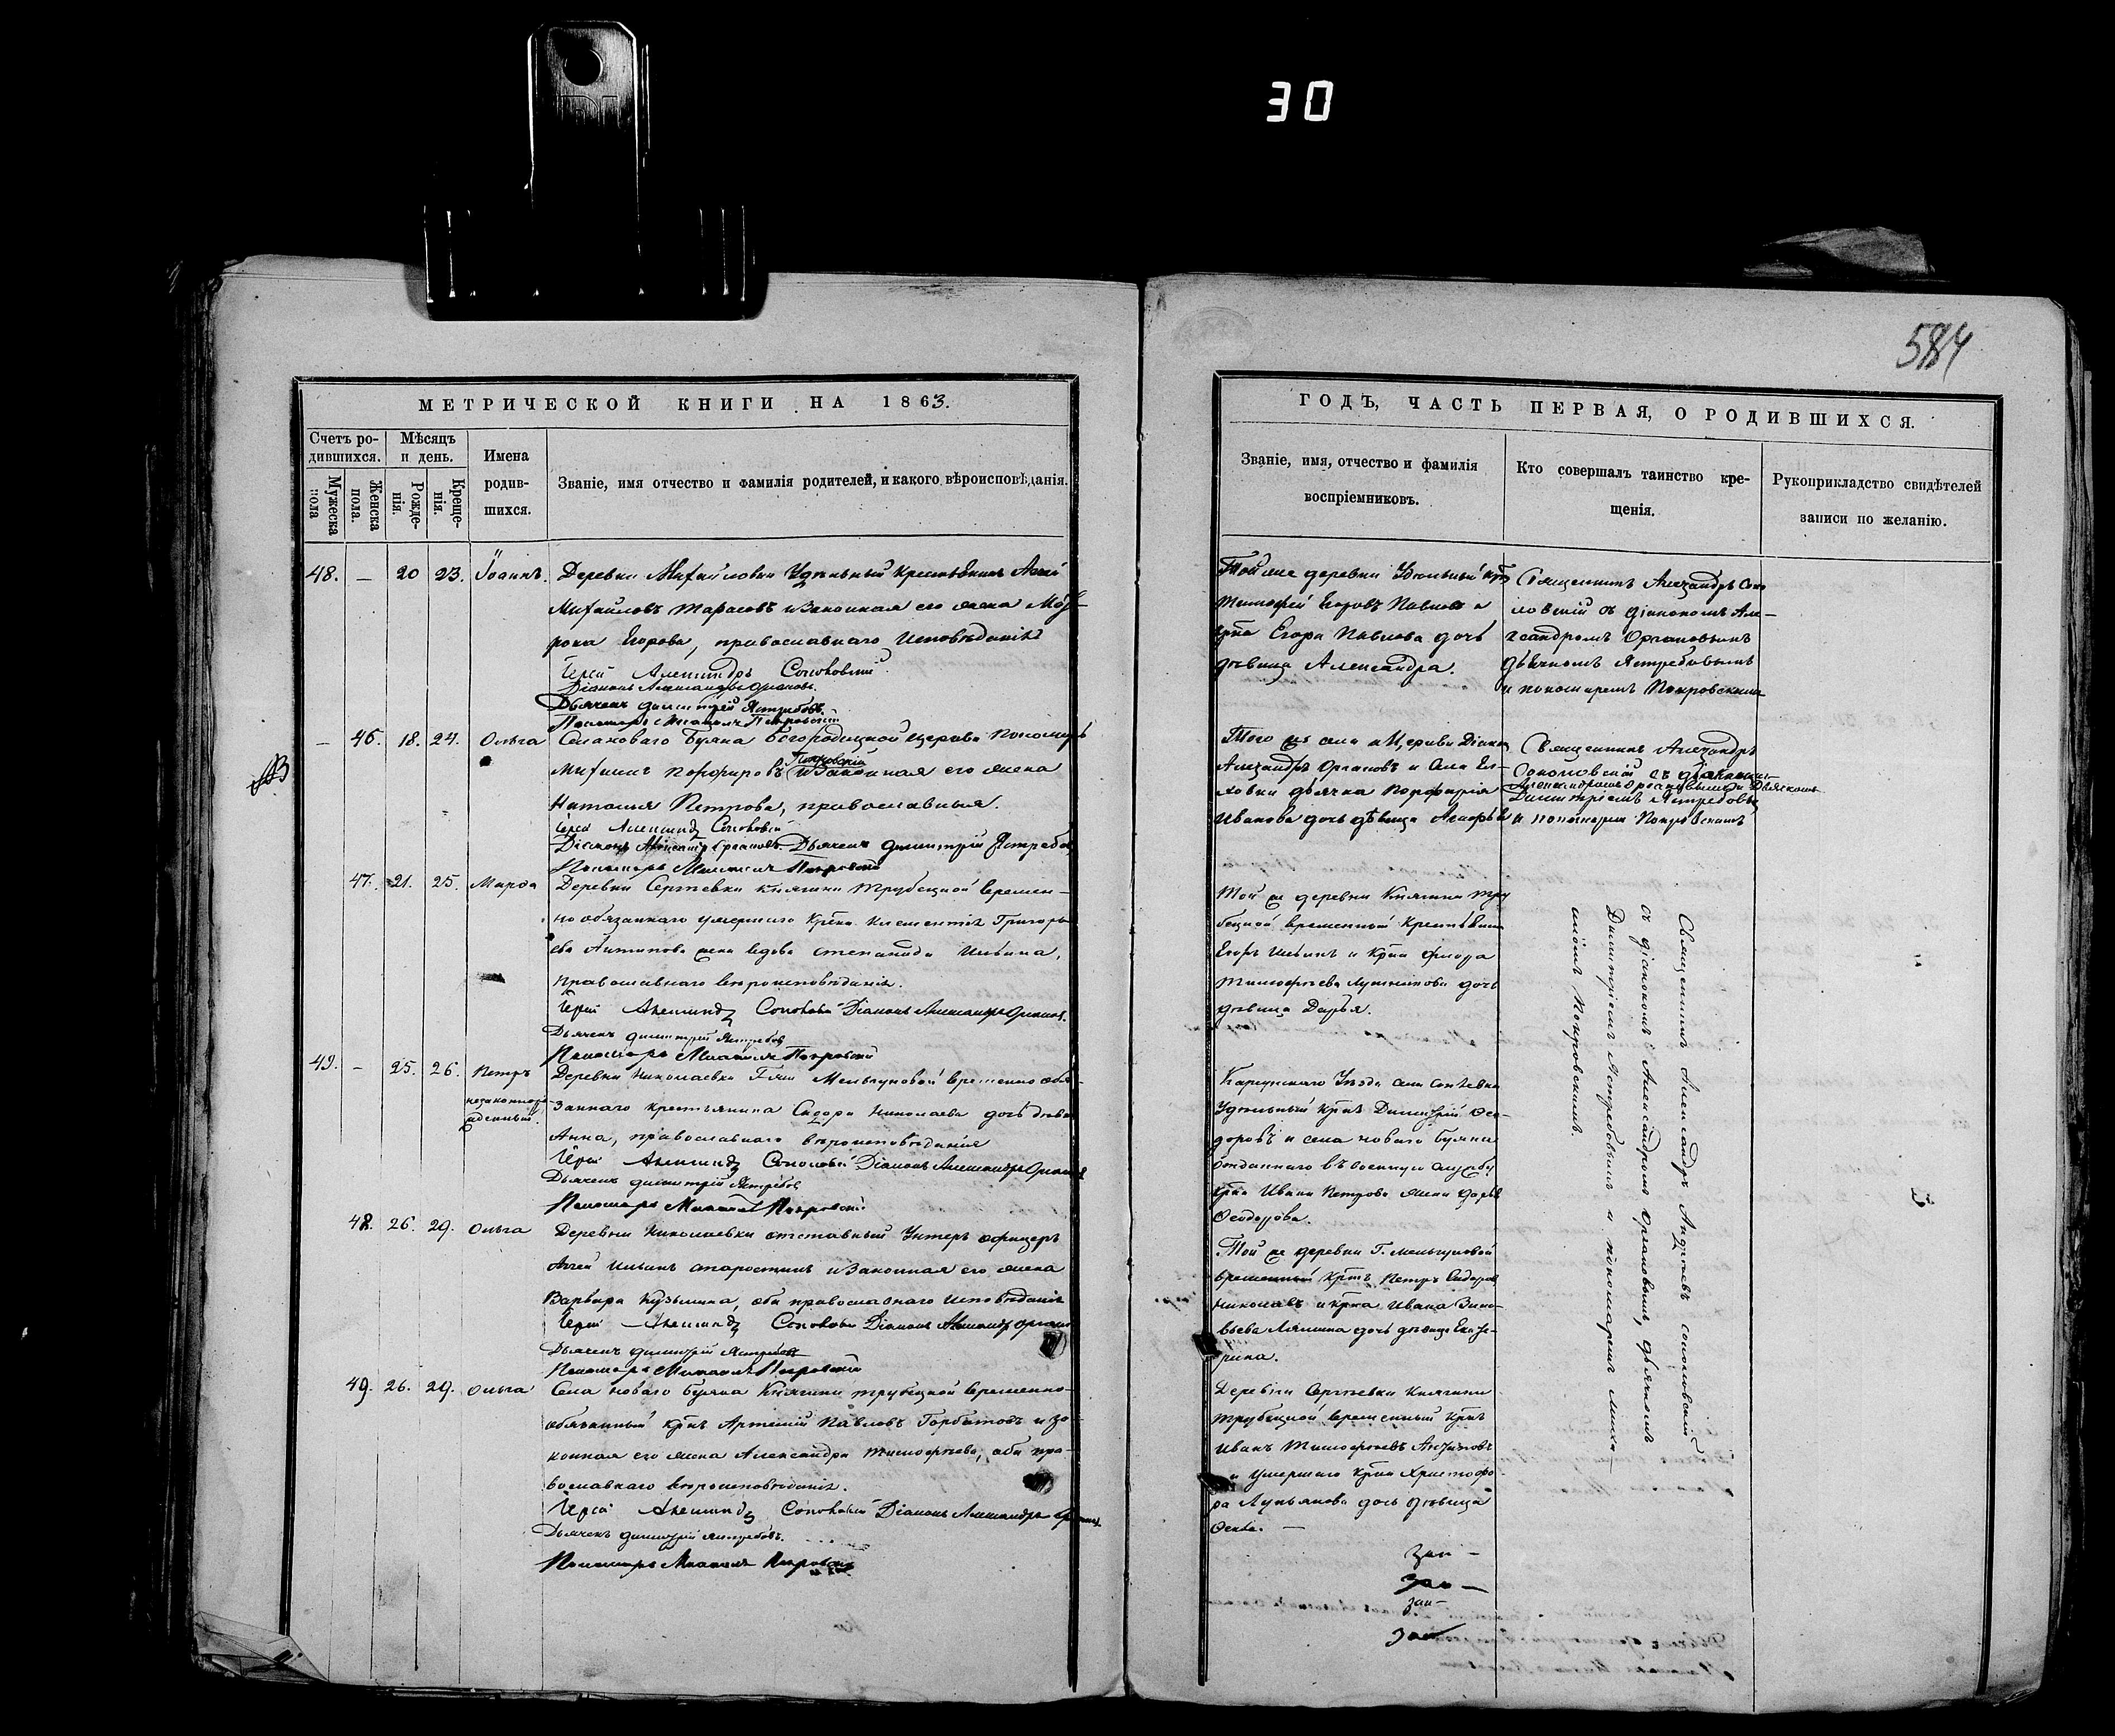 30
584
МЕТРИЧЕСКОЙ КНИГИ НА 1863.
Счетъ ро-
дившихся.
Мужеска
пола
Женска
пола.
Мѣсяцъ
и день.
Рожде-
нія.
Креще-
нія.
Имена
родив-
шихся.
Званіе, имя отчество и фамилія родителей, и какого вѣроисповѣданія.
48. — 20 23. Іоаннъ. Деревни Михайловки Удѣльный Крестьянинъ
Михайловъ Тарасовъ и Законная его жена
Егорова, православнаго исповѣданія
Іерей Александръ Соколовскій
Діаконъ Александръ Органовъ.
Дьячекъ Димитрій Ястребовъ.
Пономарь Михаилъ Покровскій
— 46. 18. 24. Ольга Села новаго Буяна Богородицкой церкви Пономарь
Михаилъ Порфировъ Покровскій и Законная его жена
Наталья Петрова, православныя.
Іерей Александръ Соколовскій
Діаконъ Александръ Органовъ. Дьячекъ Димитрій Ястребовъ
Пономарь Михаилъ Покровскій
47. 21. 25. Марфа Деревни Сергѣевки Княгини Трубецкой времен-
но обязаннаго умершаго Крѣна Климентія Григорь-
ева Антипова жена вдова Степанида Ильина,
православнаго вѣроисповѣданія.
Іерей Александръ Соколовскій Діаконъ Александръ Органовъ.
Дьячекъ Димитрій Ястребовъ
Пономарь Михаилъ Покровскій
49. — 25. 26. Петръ
незаконно
рожденный.
Деревни Николаевки Г-жи Мельгуновой временно обя-
заннаго крестьянина Сидора Николаева дочь дѣвка
Анна, православнаго вѣроисповѣданія
Іерей Александръ Соколовскій Діаконъ Александръ Органовъ
Дьячекъ Димитрій Ястребовъ
Пономарь Михаилъ Покровскій
48. 26. 29. Ольга Деревни Николаевки отставный Унтеръ офицеръ
Ильинъ Старостинъ и Законная его жена
Варвара Кузьмина, оба православнаго исповѣданія
Іерей Александръ Соколовскій Діаконъ Александръ Органовъ
Дьячекъ Димитрій Ястребовъ
Пономарь Михаилъ Покровскій
49. 26. 29. Ольга Села новаго Буяна Княгини Трубецкой временно-
обязанный крнъ Артемій Павловъ Горбатовъ и за-
конная его жена Александра Тимофѣева, оба пра-
вославнаго вѣроисповѣданія.
Іерей Александръ Соколовскій Діаконъ Александръ Органовъ
Дьячекъ Димитрій Ястребовъ.
Пономарь Михаилъ Покровскій
ГОДЪ, ЧАСТЬ ПЕРВАЯ, О РОДИВШИХСЯ.
Званіе, имя, отчество и фамилія
воспріемниковъ.
Кто совершалъ таинство кре-
щенія.
Рукоприкладство свидѣтелей
записи по желанію.
Той же деревни Удѣльный крнъ
Тимофей Егоровъ Павловъ и
крна Егора Павлова дочь
дѣвица Александра.
Священникъ Александръ Соко
ловскій съ діакономъ Але-
ксандромъ Органовымъ
дьячкомъ Ястребовымъ
и пономаремъ Покровскимъ
Того же села и Церкви Діаконъ
Александръ Органовъ и Села Ел-
ховки дьячка Порфирія
Иванова дочь дѣвица
Священникъ Александръ
Соколовскій съ діакономъ
Александромъ Органовымъ и Дьячкомъ
Димитріемъ Ястребовымъ
и пономаремъ Покровскимъ
Той же деревни Княгини Тру
бецкой временный Крестьянинъ
Егоръ Ильинъ и Крна
Тимофѣева дочь
дѣвица Дарья.
Священникъ Александръ Андреевъ Соколовскій
съ діакономъ Александромъ Органовымъ, дьячкомъ
Димитріемъ Ястребовымъ и пономаремъ Миха-
иломъ Покровскимъ.
Уѣзда села
Удѣльный Крнъ Димитрій Ѳео-
доровъ и села новаго Буяна
отданнаго въ военную службу
крна Ивана Петрова жена Дарья
Ѳеодорова.
Той же деревни Г. Мельгуновой
временный Крнъ Петръ Сидоровъ
Николаевъ и крна Ивана Зино-
вьева дочь дѣвица Екате-
рина.
Деревни Сергѣевки Княгини
Трубецкой временный крнъ
Иванъ Тимофѣевъ Антиповъ
и умершаго Крна Христофо-
ра Лукьянова дочь дѣвица